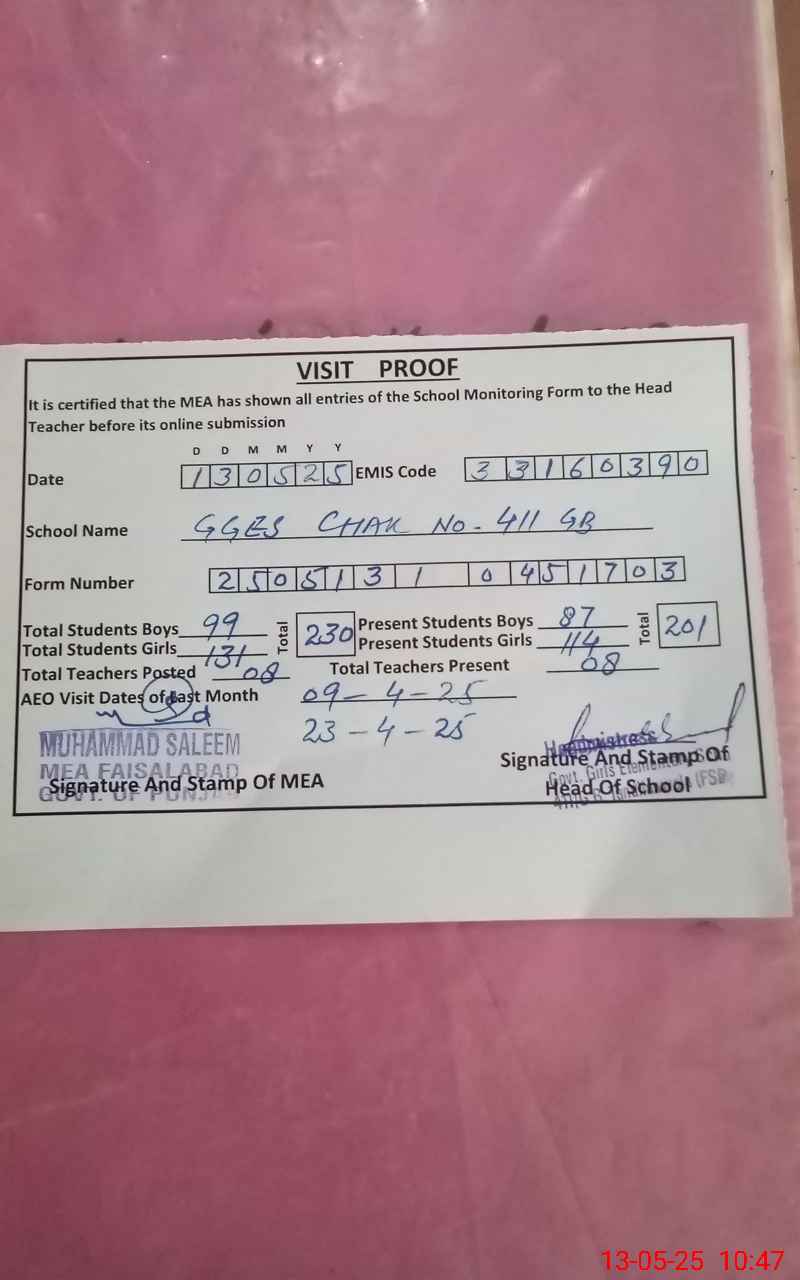 VISIT PROOF
It is certified that the MEA has shown all entries of the School Monitoring Form to the Head
Teacher before its online submission
D D M M Y Y
Date 130525 EMIS Code 33160390
School Name GGES CHAK No. 411 GB
Form Number 2505131 0451703
Total Students Boys 99 Total 230 Present Students Boys 87 Total 201
Total Students Girls 131 Present Students Girls 114
Total Teachers Posted 08 Total Teachers Present 08
AEO Visit Dates of Last Month 09-4-25
23-4-25
MUHAMMAD SALEEM
MEA FAISALABAD
GOVT. OF PUNJAB
Signature And Stamp Of MEA
Headmistress
Signature And Stamp Of
Govt. Girls Elementary
Head Of School
(FSD
13-05-25 10:47